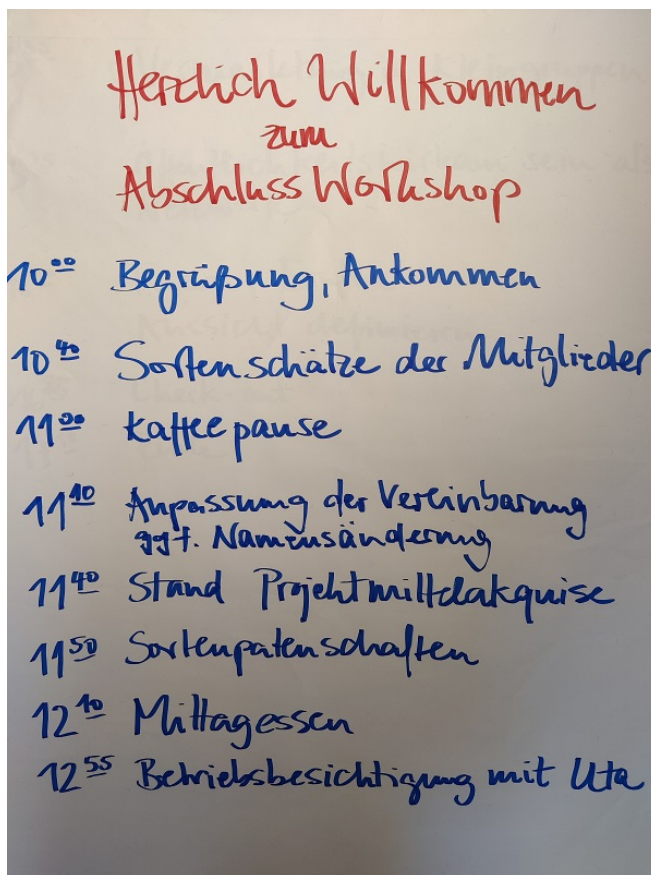 Herzlich Willkommen
zum
Abschluss Workshop
10⁰⁰ Begrüßung, Ankommen
10⁴⁰ Sortenschätze der Mitglieder
11⁰⁰ Kaffeepause
11¹⁰ Anpassung der Vereinbarung
ggf. Namensänderung
11⁴⁰ Stand Projektmittelakquise
11⁵⁰ Sortenpatenschaften
12¹⁰ Mittagessen
12⁵⁵ Betriebsbesichtigung mit Uta